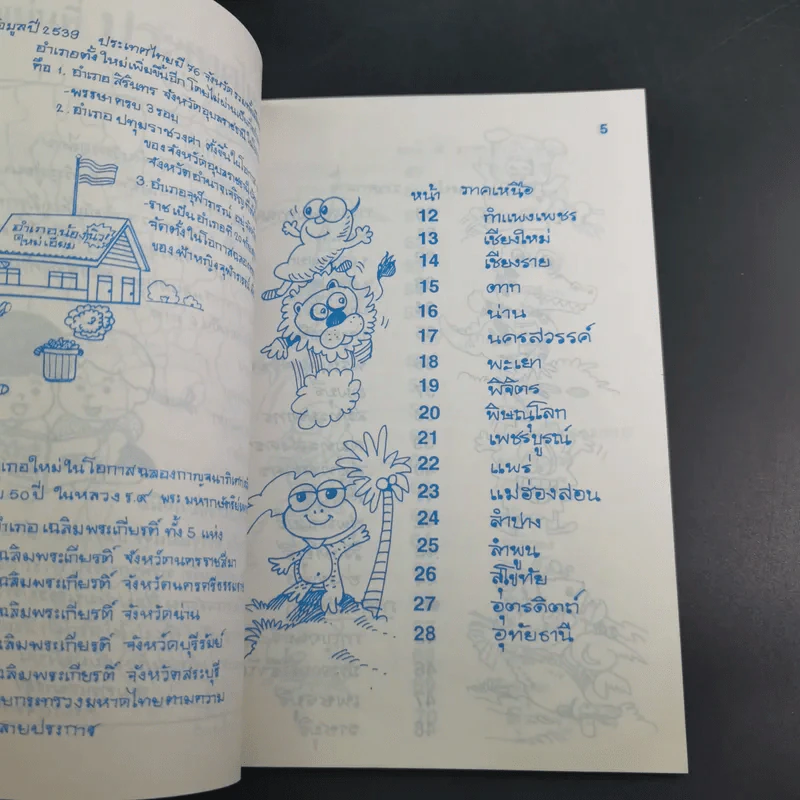 มูลปี 2539 ประเทศไทยมี 76 จังหวัด
อำเภอตั้งใหม่เพิ่มขึ้นอีก
คือ 1. อำเภอ สิรินธร จังหวัดอุบลราชธานี
-พรรษา ครบ 3 รอบ
2. อำเภอ ปทุมราชวงศา ตั้งขึ้นใน
ของจังหวัดอุบลราชธานี
จังหวัดอำนาจเจริญ
3. อำเภอจุฬาภรณ์
-ราช เป็น อำเภอที่ 20
จัดตั้งในโอกาสฉลอง
ของฟ้าหญิงจุฬาภรณ์
อำเภอน้อง
ใหม่เอี่ยม
เภอใหม่ ในโอกาสฉลองกาญจนาภิเษก
50 ปี ในหลวง ร.๙ พระมหากษัตริย์
อำเภอ เฉลิมพระเกียรติ์ ทั้ง 5 แห่ง
เฉลิมพระเกียรติ์ จังหวัดนครราชสีมา
เฉลิมพระเกียรติ์ จังหวัดนครศรีธรรมราช
เฉลิมพระเกียรติ์ จังหวัดน่าน
เฉลิมพระเกียรติ์ จังหวัดบุรีรัมย์
เฉลิมพระเกียรติ์ จังหวัดสระบุรี
ยกระทรวงมหาดไทยตามความ
ลายประการ
5
หน้า ภาคเหนือ
12 กำแพงเพชร
13 เชียงใหม่
14 เชียงราย
15 ตาก
16 น่าน
17 นครสวรรค์
18 พะเยา
19 พิจิตร
20 พิษณุโลก
21 เพชรบูรณ์
22 แพร่
23 แม่ฮ่องสอน
24 ลำปาง
25 ลำพูน
26 สุโขทัย
27 อุตรดิตถ์
28 อุทัยธานี